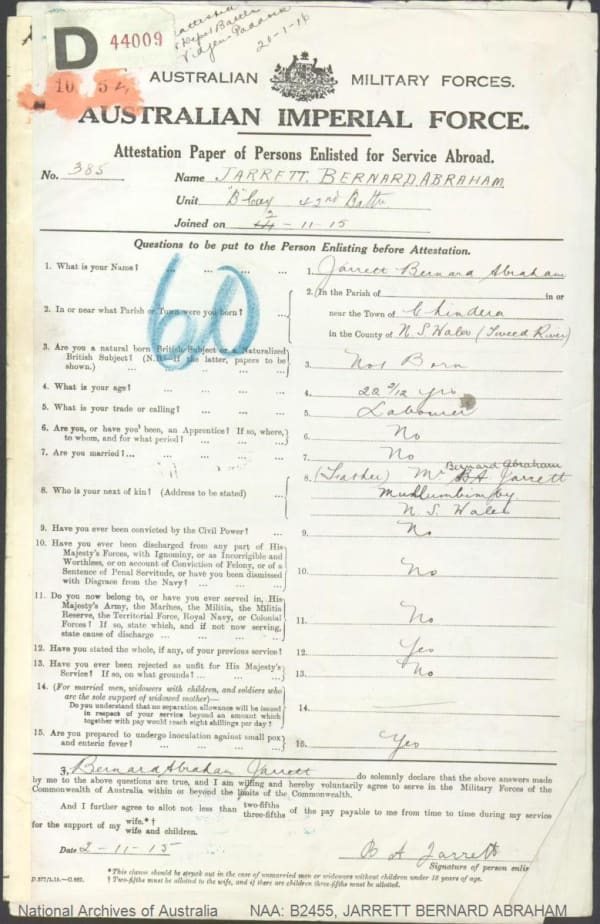 D 44009
10 5
20-1-16
AUSTRALIAN MILITARY FORCES.
AUSTRALIAN IMPERIAL FORCE.
Attestation Paper of Persons Enlisted for Service Abroad.
No. 385 Name JARRETT. BERNARD ABRAHAM
Unit "D" Coy 42nd Battn
Joined on 2-11-15
Questions to be put to the Person Enlisting before Attestation.
60
1. What is your Name? ... ... ... 1. Jarrett Bernard Abraham
2. In or near what Parish or Town were you born? ... 2. In the Parish of in or
near the Town of Chindera
in the County of N. S. Wales (Tweed River)
3. Are you a natural born British Subject or a Naturalized
British Subject? (N.B.—If the latter, papers to be
shown.) ... 3. Nat Born
4. What is your age? ... ... ... ... 4. 22 2/12 yrs
5. What is your trade or calling? ... ... ... 5. Labourer
6. Are you, or have you been, an Apprentice? If so, where,
to whom, and for what period? ... ... ... 6. No
7. Are you married? ... ... ... ... 7. No
Bernard Abraham
8. Who is your next of kin? (Address to be stated) ... 8. (Father) Mr B A Jarrett
Mullumbimby
N. S. Wales
9. Have you ever been convicted by the Civil Power? ... 9. No
10. Have you ever been discharged from any part of His
Majesty's Forces, with Ignominy, or as Incorrigible and
Worthless, or on account of Conviction of Felony, or of a
Sentence of Penal Servitude, or have you been dismissed
with Disgrace from the Navy? ... ... ... 10. No
11. Do you now belong to, or have you ever served in, His
Majesty's Army, the Marines, the Militia, the Militia
Reserve, the Territorial Force, Royal Navy, or Colonial
Forces? If so, state which, and if not now serving,
state cause of discharge ... ... ... 11. No
12. Have you stated the whole, if any, of your previous service? 12. Yes
13. Have you ever been rejected as unfit for His Majesty's
Service? If so, on what grounds? ... ... 13. No
14. (For married men, widowers with children, and soldiers who
are the sole support of widowed mother)—
Do you understand that no separation allowance will be issued
in respect of your service beyond an amount which
together with pay would reach eight shillings per day? 14.
15. Are you prepared to undergo inoculation against small pox
and enteric fever? ... ... ... 15. Yes
I, Bernard Abraham Jarrett do solemnly declare that the above answers made
by me to the above questions are true, and I am willing and hereby voluntarily agree to serve in the Military Forces of the
Commonwealth of Australia within or beyond the limits of the Commonwealth.
And I further agree to allot not less than two-fifths three-fifths of the pay payable to me from time to time during my service
for the support of my wife.*† wife and children.
Date 2-11-15 B A Jarrett
Signature of person enlis
*This clause should be struck out in the case of unmarried men or widowers without children under 18 years of age.
† Two-fifths must be allotted to the wife, and if there are children three-fifths must be allotted.
National Archives of Australia NAA: B2455, JARRETT BERNARD ABRAHAM